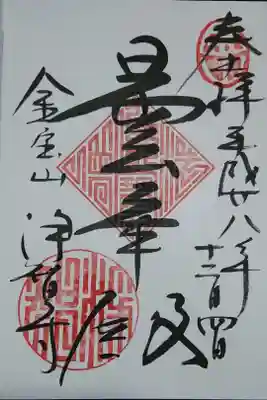 奉拝 平成廿八年
十二月四日
曇華殿
金宝山 浄智寺